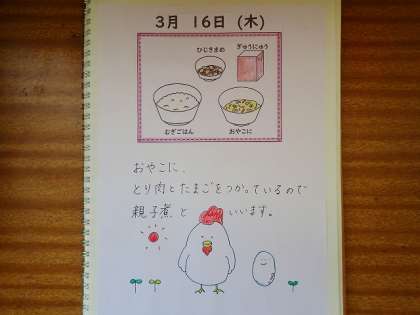 3月 16日 (木)
ひじきまめ
ぎゅうにゅう
むぎごはん
おやこに
おやこに、
とり肉とたまごをつかっているので
親子煮 と いいます。